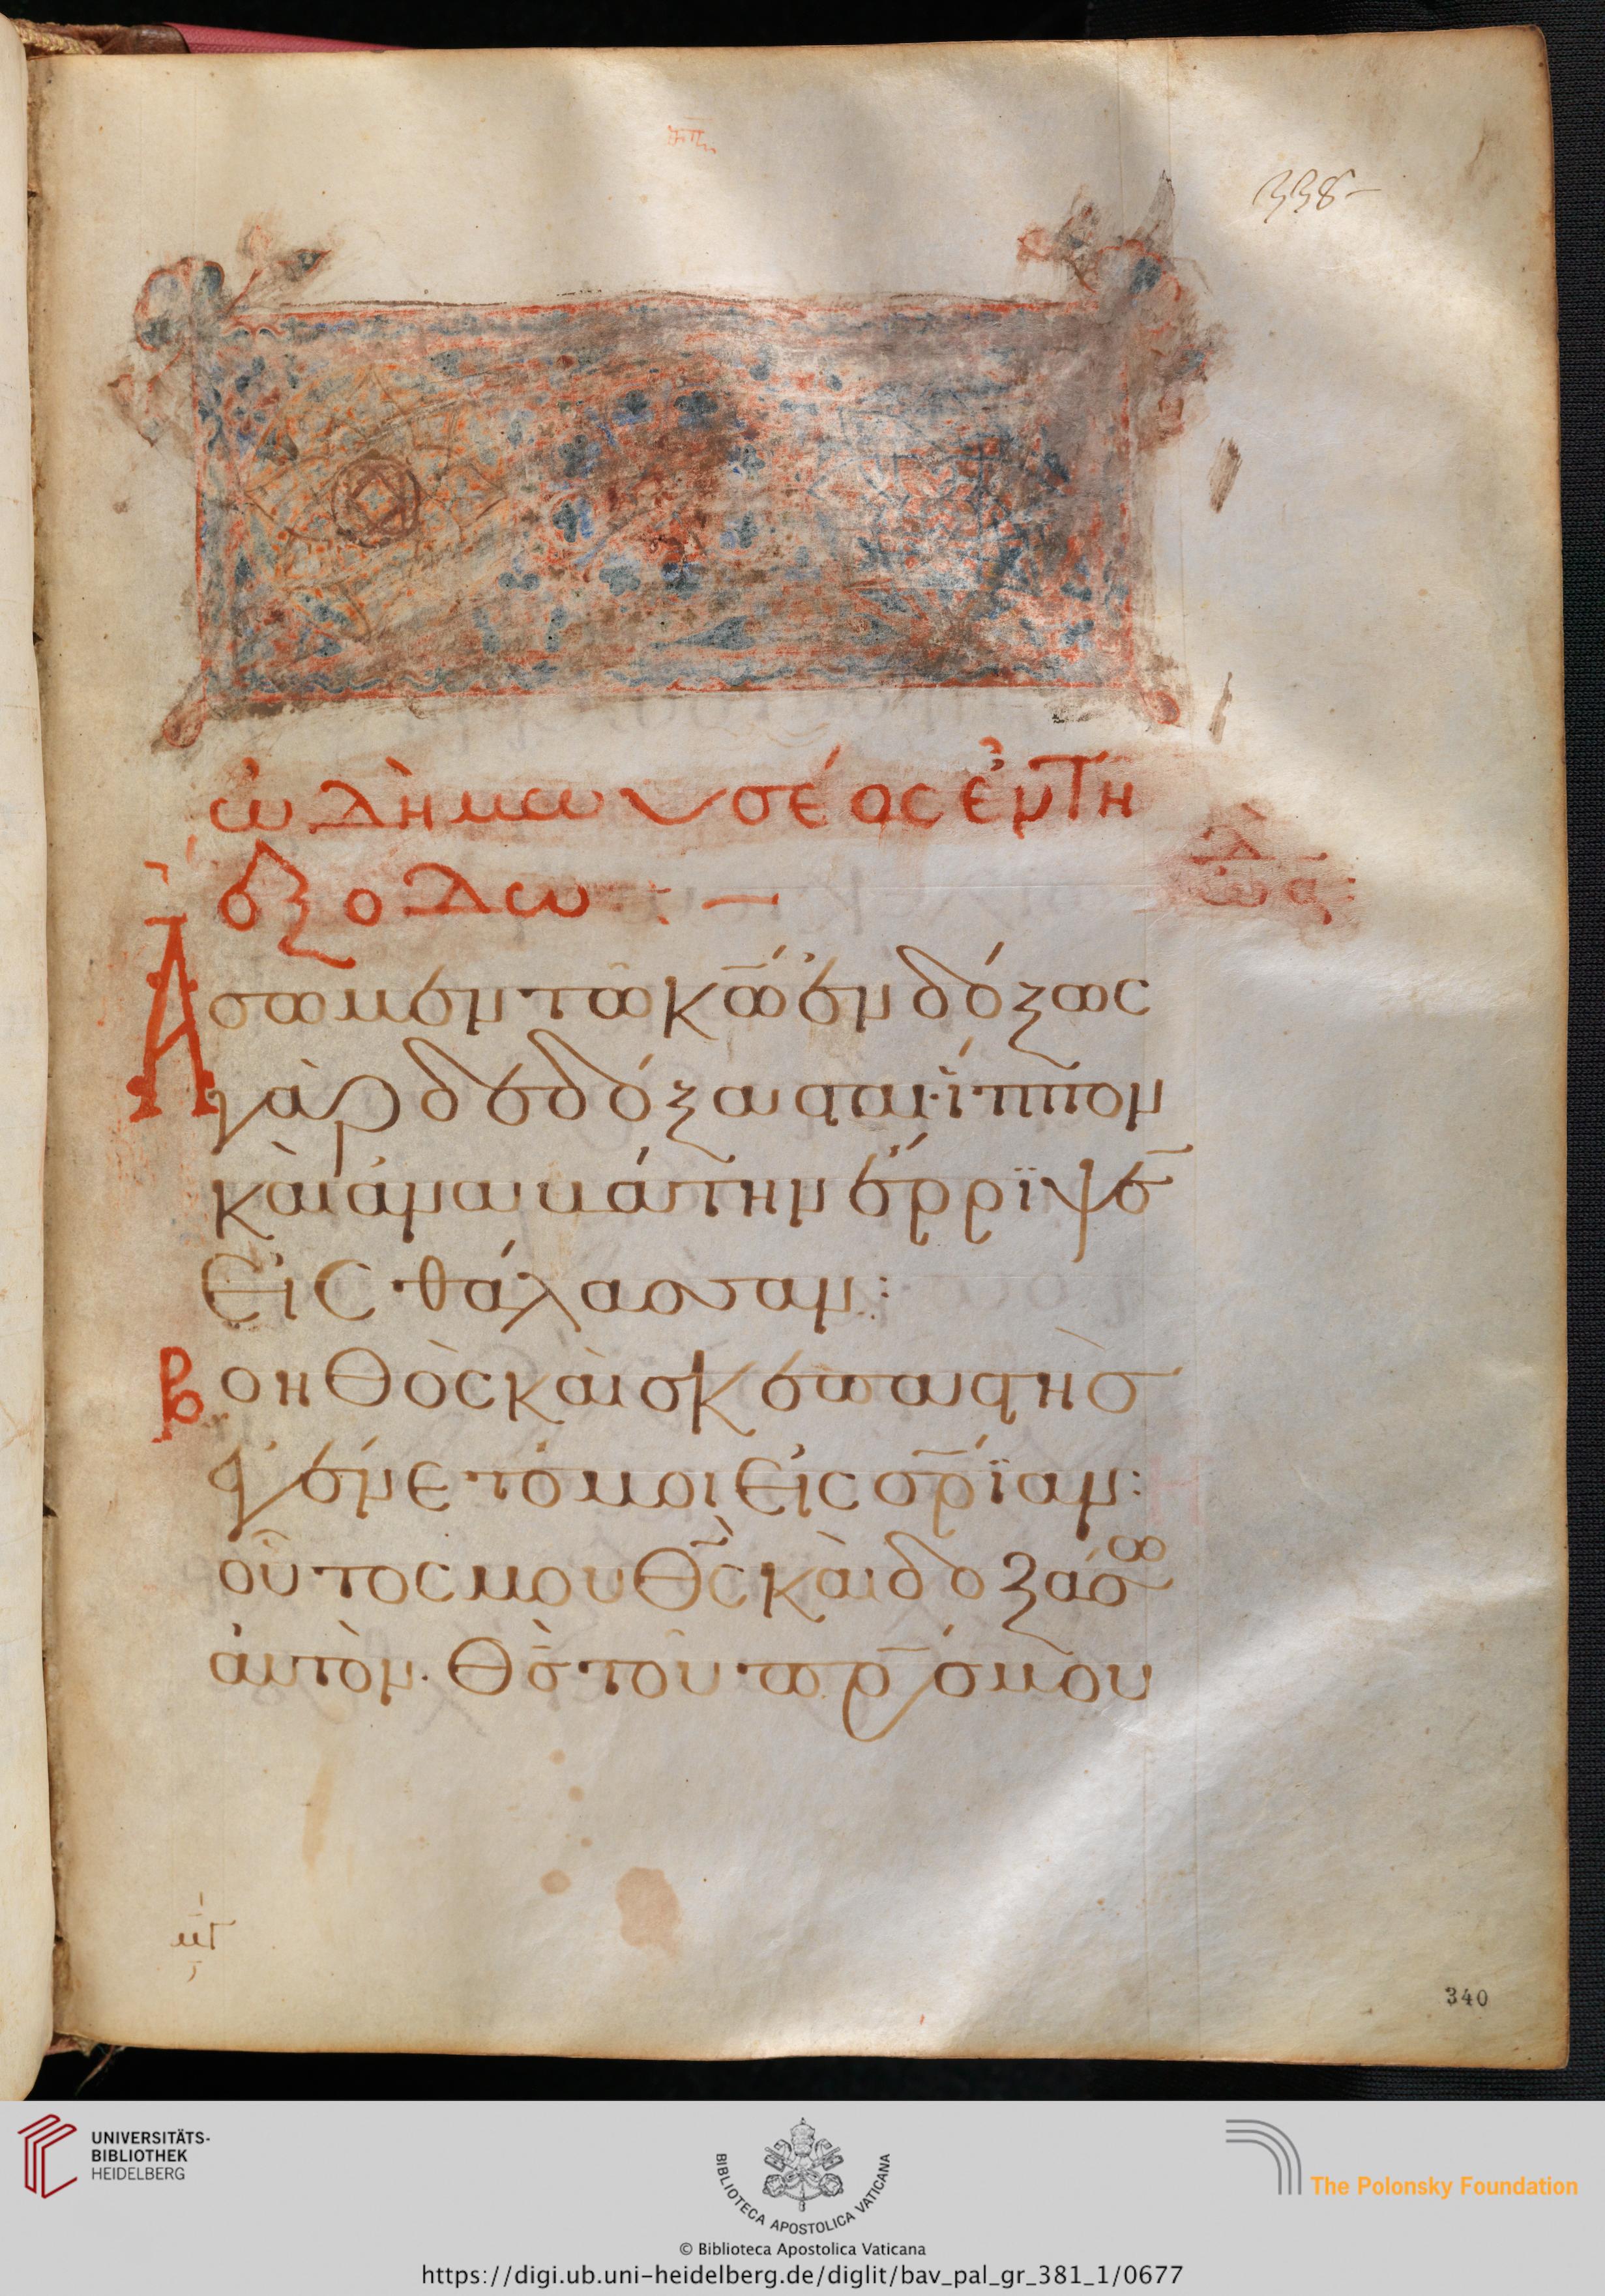 338
ὠδὴ μωυσέος ἐν τῆ
ἐξόδω :—
ὠδὴ α:
Ἄσωμεν τῶ κῶ ἐνδόξως
γὰρ δεδόξασται· ἵππον
καὶ ἀναβάτην ἔρριψεν
εἰς θάλασσαν:
Βοηθὸς καὶ σκεπαστὴς
ἐγένετό μοι εἰς σρίαν:
οὗτός μου θς καὶ δοξάσω
αὐτὸν· θς τοῦ πρς μου
μγ
340
UNIVERSITÄTS-
BIBLIOTHEK
HEIDELBERG
BIBLIOTECA APOSTOLICA VATICANA
The Polonsky Foundation
© Biblioteca Apostolica Vaticana
https://digi.ub.uni-heidelberg.de/diglit/bav_pal_gr_381_1/0677